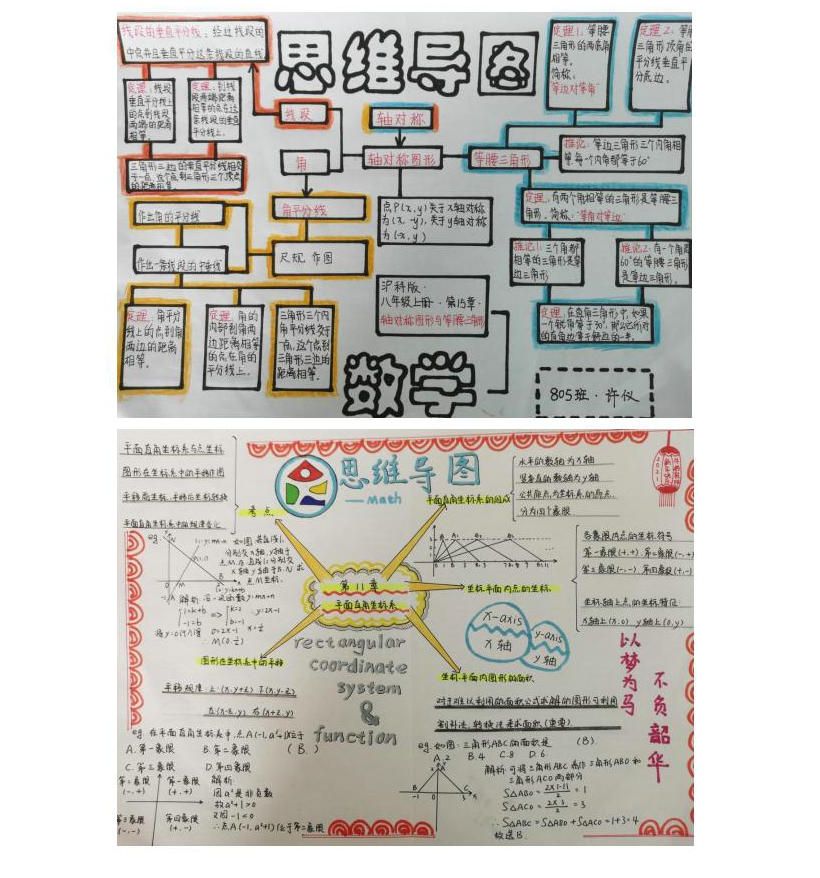 思维导图
线段的垂直平分线:经过线段的
中点并且垂直平分这条线段的直线
定理:线段
垂直平分线上
的点到线段
两端的距离
相等。
定理:到线
段两端距离
相等的点在这
条线段的垂直
平分线上。
三角形三边的垂直平分线相交
于一点,这个点到三角形三个顶点
的距离相等。
线段
角
轴对称
轴对称图形
等腰三角形
定理1:等腰
三角形的两底角
相等。
简称:
“等边对等角”
定理2:等腰
三角形顶角的
平分线垂直平
分底边。
推论:等边三角形三个内角相
等,每个内角都等于60°
定理:有两个角相等的三角形是等腰三
角形。简称:“等角对等边”
推论1:三个角都
相等的三角形是等
边三角形
推论2:有一个角是
60°的等腰三角形
是等边三角形。
定理:在直角三角形中,如果
一个锐角等于30°,那么它所对
的直角边等于斜边的一半。
作出角的平分线
作出一条线段的中垂线
角平分线
尺规作图
点P(x,y)关于x轴对称
为(x,-y),关于y轴对称
为(-x,y)
定理:角平分
线上的点到角
两边的距离
相等。
定理:角的
内部到角两
边距离相等
的点在角的
平分线上。
三角形三个内
角平分线交于
一点,这个点到
三角形三边的
距离相等。
沪科版·
八年级上册·第15章·
轴对称图形与等腰三角形
数学
805班·许仪
平面直角坐标系与点坐标
图形在坐标系中的平移作图
平面直角坐标系中的规律变化
考点
思维导图
—Math
平面直角坐标系的组成
水平的数轴为x轴
竖直的数轴为y轴
公共原点为坐标系的原点
分为四个象限
2021
各象限内点的坐标符号
第一象限(+,+) 第二象限(-,+)
第三象限(-,-) 第四象限(+,-)
坐标轴上点的坐标特征:
x轴上(x,0) y轴上(0,y)
坐标平面内点的坐标
第11章
平面直角坐标系
x-axis
x轴
y-axis
y轴
rectangular
coordinate
system
&
function
图形在坐标系中的平移
坐标平面内图形的面积
以梦为马
不负韶华
对于难以利用的面积公式求解的图形可利用
割补法、转换法来求面积(重要)
eg. 在平面直角坐标系中,点A(-1,a²+1)位于
(B)
A.第一象限 B.第二象限
C.第三象限 D.第四象限
第二象限
(-,+)
第一象限
(+,+)
第三象限
(-,-)
第四象限
(+,-)
解析:
因a²是非负数
故a²+1>0
又因-1<0
∴点A(-1,a²+1)位于第二象限
eg. 如图:三角形ABC的面积是 (B)
A.2 B.4 C.8 D.6
解析:可将三角形ABC看作三角形ABO和
三角形ACO两部分
S△ABO=2×|-1|/2=1
S△ACO=2×3/2=3
∴S△ABC=S△ABO+S△ACO=1+3=4
故选B.